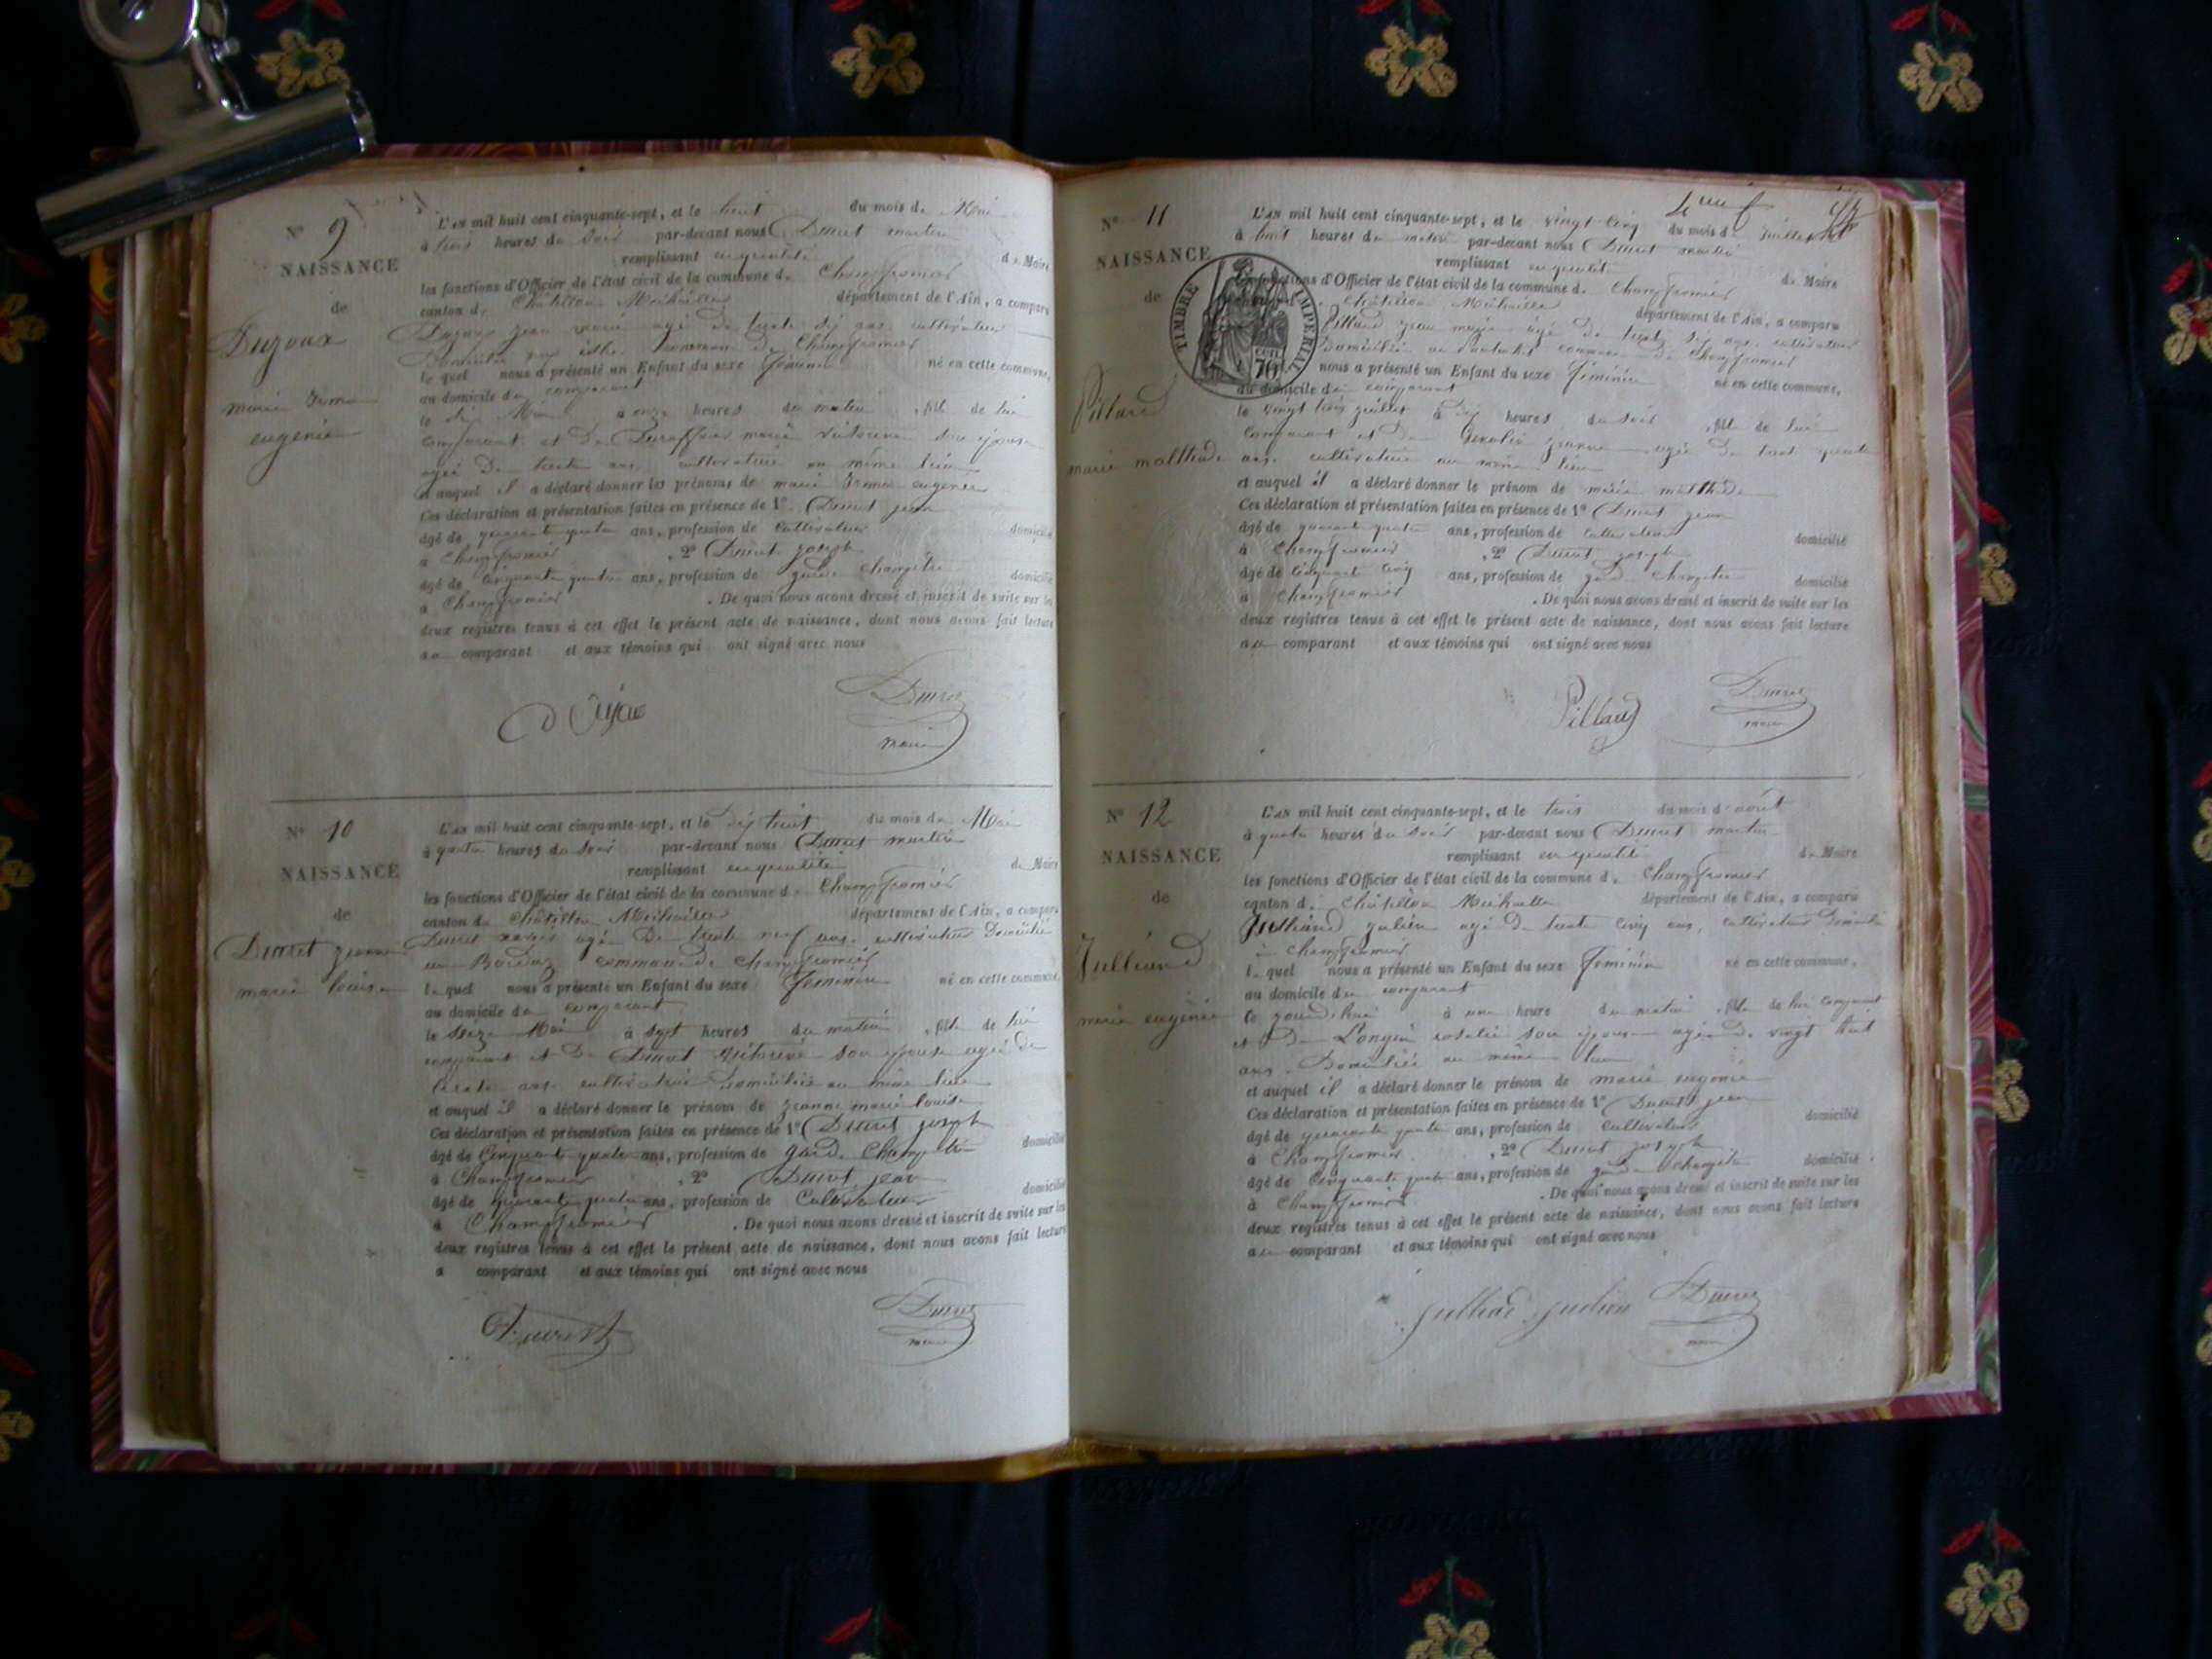 N° 9
NAISSANCE
de
Dujoux
marie
eugenie
L'AN mil huit cent cinquante-sept, et le huit du mois de Mai
à trois heures du soir par-devant nous Ducret martin
remplissant en qualité de Maire
les fonctions d'Officier de l'état civil de la commune de Champfromier
canton de Châtillon Michaille département de l'Ain, a comparu
jean marie agé de trente ans cultivateur
commune de Champfromier
le quel nous a présenté un Enfant du sexe féminin né en cette commune,
au domicile du comparant
le Mai à onze heures du matin , fille de lui
comparant et de marie victorine son épouse
agée de trente ans cultivatrice au même lieu
et auquel il a déclaré donner les prénoms de marie eugenie
Ces déclaration et présentation faites en présence de 1° Ducret jean
âgé de quarante quatre ans, profession de cultivateur domicilié
à Champfromier , 2° Ducret joseph
âgé de cinquante quatre ans, profession de garde champêtre domicilié
à Champfromier . De quoi nous avons dressé et inscrit de suite sur les
deux registres tenus à cet effet le présent acte de naissance, dont nous avons fait lecture
au comparant et aux témoins qui ont signé avec nous
Ducret
maire
N° 10
NAISSANCE
de
Ducret jeanne
marie louise
L'AN mil huit cent cinquante-sept, et le dix huit du mois de Mai
à quatre heures du soir par-devant nous Ducret martin
remplissant en qualité de Maire
les fonctions d'Officier de l'état civil de la commune de Champfromier
canton de Châtillon Michaille département de l'Ain, a comparu
Ducret agé de trente neuf ans cultivateur domicilié
commune de Champfromier
le quel nous a présenté un Enfant du sexe féminin né en cette commune,
au domicile du comparant
le seize Mai à sept heures du matin , fille de lui
comparant et de Ducret victorine son épouse agée de
trente ans cultivatrice domiciliée au même lieu
et auquel il a déclaré donner le prénom de jeanne marie louise
Ces déclaration et présentation faites en présence de 1° Ducret joseph
âgé de cinquante quatre ans, profession de garde champêtre domicilié
à Champfromier , 2° Ducret jean
âgé de quarante quatre ans, profession de cultivateur domicilié
à Champfromier . De quoi nous avons dressé et inscrit de suite sur les
deux registres tenus à cet effet le présent acte de naissance, dont nous avons fait lecture
a comparant et aux témoins qui ont signé avec nous
Ducret
Ducret
maire
N° 11
NAISSANCE
de
TIMBRE IMPERIAL
70
Pillard
marie malthide
L'AN mil huit cent cinquante-sept, et le vingt cinq du mois de juillet
à huit heures du matin par-devant nous Ducret martin
remplissant en qualité de Maire
fonctions d'Officier de l'état civil de la commune de Champfromier
Châtillon Michaille département de l'Ain, a comparu
Pillard jean marie agé de trente six ans cultivateur
domicilié commune de Champfromier
nous a présenté un Enfant du sexe féminin né en cette commune,
au domicile du comparant
le vingt trois juillet à dix heures du soir , fille de lui
comparant et de jeanne agée de trente quatre
ans cultivatrice au même lieu
et auquel il a déclaré donner le prénom de marie malthide
Ces déclaration et présentation faites en présence de 1° Ducret jean
âgé de quarante quatre ans, profession de cultivateur domicilié
à Champfromier , 2° Ducret joseph
âgé de cinquante cinq ans, profession de garde champêtre domicilié
à Champfromier . De quoi nous avons dressé et inscrit de suite sur les
deux registres tenus à cet effet le présent acte de naissance, dont nous avons fait lecture
au comparant et aux témoins qui ont signé avec nous
Pillard
Ducret
maire
N° 12
NAISSANCE
de
Julliand
marie eugénie
L'AN mil huit cent cinquante-sept, et le trois du mois d'août
à quatre heures du soir par-devant nous Ducret martin
remplissant en qualité de Maire
les fonctions d'Officier de l'état civil de la commune de Champfromier
canton de Châtillon Michaille département de l'Ain, a comparu
Julliand julien agé de trente cinq ans, cultivateur domicilié
à Champfromier
le quel nous a présenté un Enfant du sexe féminin né en cette commune,
au domicile du comparant
le à une heure du matin , fille de lui comparant
et de rosalie son épouse agée de vingt huit
ans domiciliée au même lieu
et auquel il a déclaré donner le prénom de marie eugenie
Ces déclaration et présentation faites en présence de 1° Ducret jean
âgé de quarante quatre ans, profession de cultivateur domicilié
à Champfromier , 2° Ducret joseph
âgé de cinquante quatre ans, profession de garde champêtre domicilié
à Champfromier . De quoi nous avons dressé et inscrit de suite sur les
deux registres tenus à cet effet le présent acte de naissance, dont nous avons fait lecture
au comparant et aux témoins qui ont signé avec nous
Ducret
maire